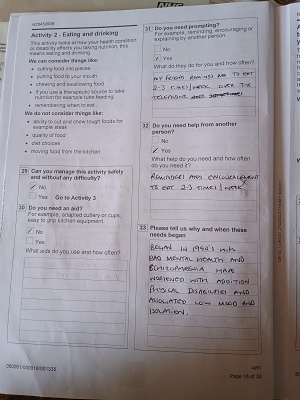 Activity 2 - Eating and drinking
This activity looks at how your health condition
or disability affects you taking nutrition, this
means eating and drinking.
We can consider things like:
• cutting food into pieces
• putting food to your mouth
• chewing and swallowing food
• if you use a therapeutic source to take
nutrition for example tube feeding
• remembering when to eat
We do not consider things like:
• ability to cut and chew tough foods for
example steak
• quality of food
• diet choices
• moving food from the kitchen
29 Can you manage this activity safely
and without any difficulty?
No
Yes Go to Activity 3
30 Do you need an aid?
For example, adapted cutlery or cups,
easy to grip kitchen equipment
No
Yes
What aids do you use and how often?
31 Do you need prompting?
For example, reminding, encouraging or
explaining by another person
No
Yes
What do they do for you and how often?
MY FRIEND REMINDS ME TO EAT
2-3 TIMES/WEEK OVER THE
TELEPHONE
32 Do you need help from another
person?
No
Yes
What help do you need and how often
do you need it?
REMINDERS AND ENCOURAGEMENT
TO EAT 2-3 TIMES/WEEK
33 Please tell us why and when these
needs began
BEGAN IN 1990's WITH
BAD MENTAL HEALTH AND
SCHIZOPHRENIA HAVE
WORSENED WITH ADDITION
PHYSICAL DISABILITIES AND
ASSOCIATED LOW MOOD AND
ISOLATION.
AR1